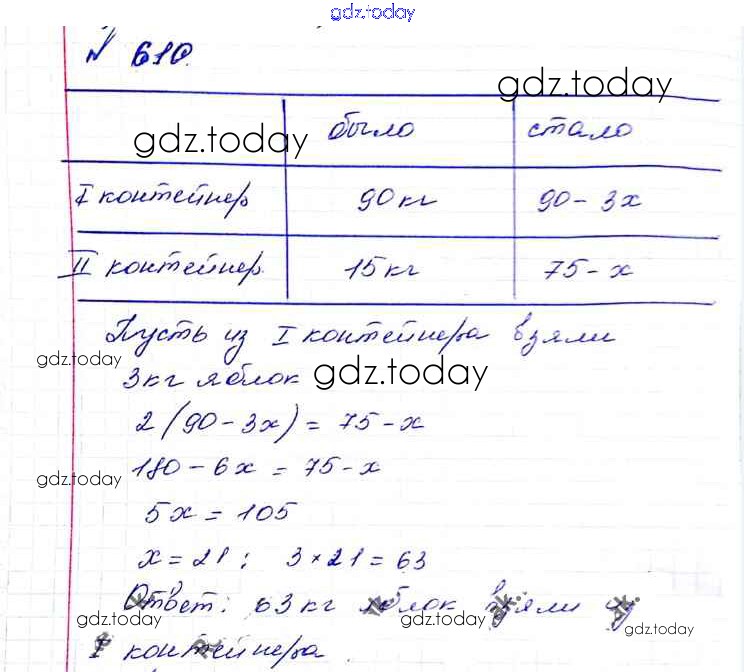 gdz.today
№ 610.
gdz.today
было стало
gdz.today
I контейнер 90 кг 90 - 3x
II контейнер 15 кг 75 - x
Пусть из I контейнера взяли
gdz.today
3 кг яблок gdz.today
2(90 - 3x) = 75 - x
180 - 6x = 75 - x
gdz.today
5x = 105
x = 21; 3 × 21 = 63
Ответ: 63 кг яблок взяли из
gdz.today gdz.today gdz.today
I контейнера